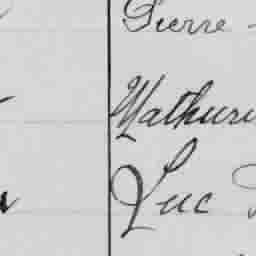 Pierre
Mathuri
Luc